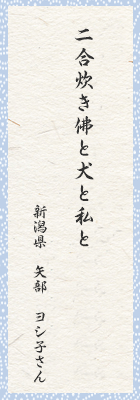 二合炊き佛と犬と私と
新潟県　矢部　ヨシ子さん